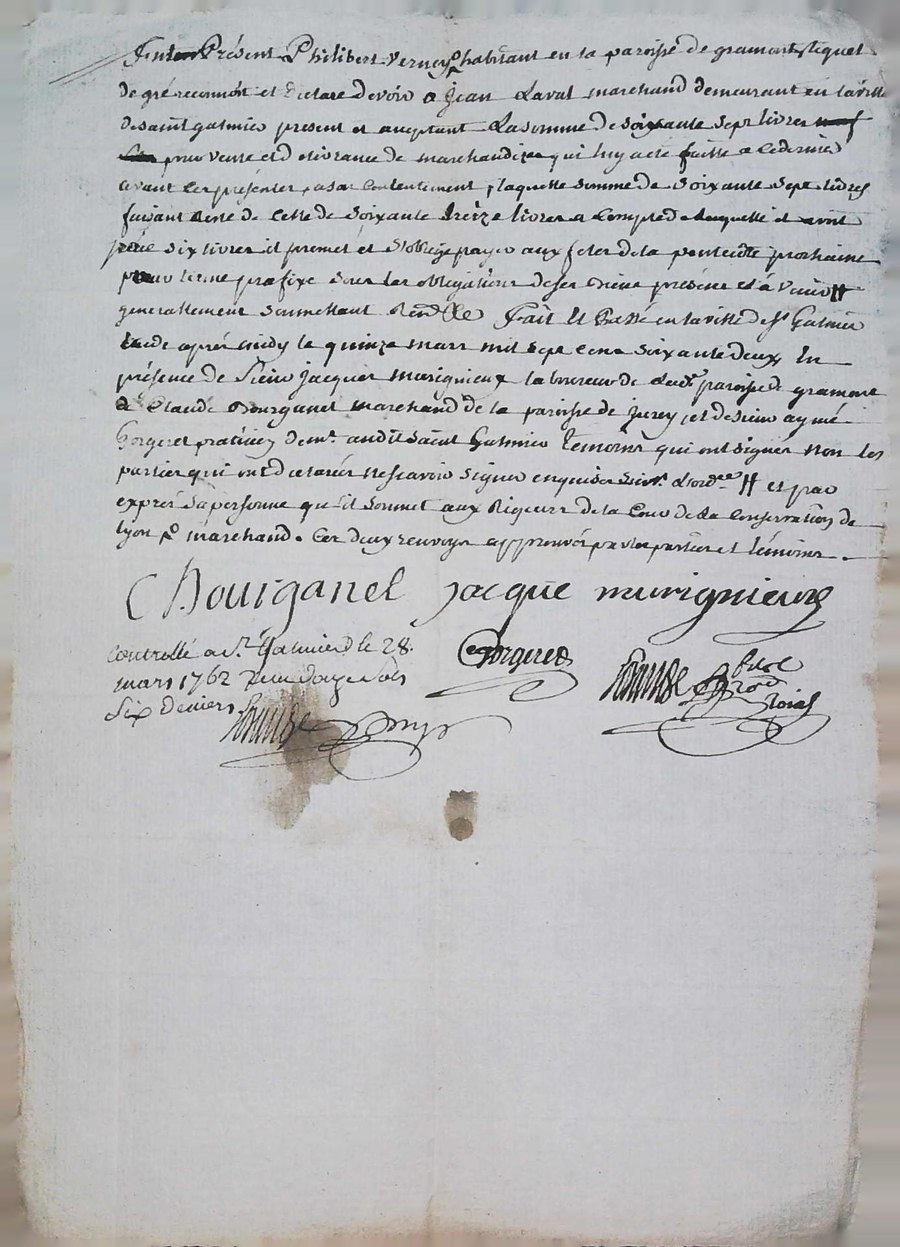 Present Philibert Verney habitant en la paroisse de gramont, lequel
de gré reconnoit et declare devoir a Jean Laval marchand demeurant en la ville
de saint galmier present et acceptant La somme de soixante sept livres
pour vente et delivrance de marchandises qui luy a été faitte a ce dernier
avant les presentes, a son contentement, laquelle somme de soixante sept livres
faisant reste de celle de soixante treize livres a compte de laquelle il avoit
payé six livres il promet et s'oblige payer aux fetes de la pentecôte prochaine
pour terme prefixe sous les obligations de ses biens présens et à venir #
generallement soumettant Rend. Fait et Passé en la ville de St Galmier
Etude aprés midy le quinze mars mil sept cens soixante deux En
présence de sieur jacques murignieux laboureur de lad. paroisse de gramont
de Claude Bourganel marchand de la paroisse de jurey, et de sieur aymé
Gorgeret praticien dem.t audit saint Galmier temoins qui ont signés non les
parties qui ont declarés ne sçavoir signer enquises # et par
exprés sa personne qu'il soumet aux Rigueurs de la Cour de la Conservation de
Lyon p. marchand. Ces deux renvoys approuvés par les parties et témoins.
C Bourganel jacque murignieux
Controllé a St. Galmier le 28. Gorgeret
mars 1762 Reçu douze sols
six deniers